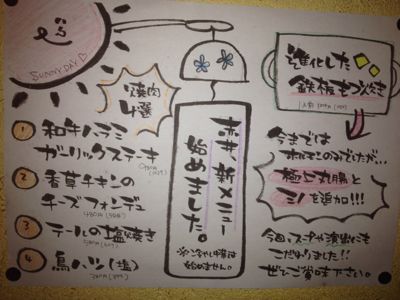 SUNNY DAY
焼肉
4選
① 和牛ハラミ
ガーリックステーキ
② 香草チキンの
チーズフォンデュ
③ テールの塩焼き
④ 鳥ハツ(塩)
赤井、新メニュー
始めました。
※冷やし中華は
始めません。
進化した
鉄板もつ炊き
今までは
ホルモンのみでしたが…
極上丸腸と
ミノを追加!!!
今回、スープや演出にも
こだわりました!!
ぜひご賞味下さい。